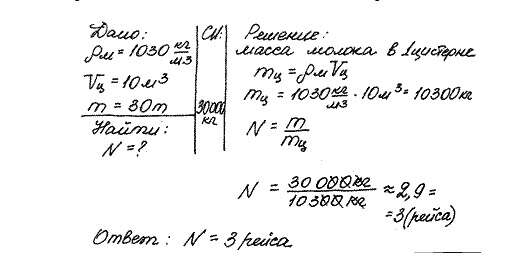 Дано:
ρм = 1030 кг/м3
Vц = 10 м³
m = 30т
Найти:
N = ?
СИ:
30000 кг
Решение:
масса молока в 1 цистерне
mц = ρмVц
mц = 1030 кг/м3 · 10 м³ = 10300 кг
N = m/mц
N = 30 000 кг/10300 кг ≈ 2,9 =
= 3 (рейса)
Ответ: N = 3 рейса